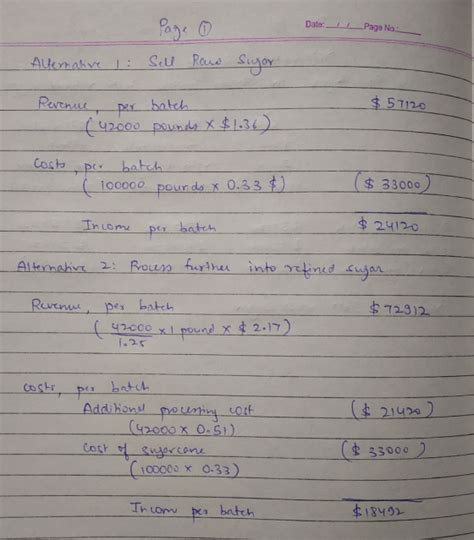 Page ①
Date: / / Page No.:
Alternative 1: Sell Raw Sugar
Revenue, per batch $57120
(42000 pounds × $1.36)
Costs, per batch
(100000 pounds × 0.33 $) ($ 33000)
Income per batch $ 24120
Alternative 2: Process further into refined sugar
Revenue, per batch $72912
(42000/1.25 × 1 pound × $ 2.17)
costs, per batch
Additional processing cost ($ 21420)
(42000 × 0.51)
Cost of sugarcane ($ 33000)
(100000 × 0.33)
Income per batch $18492